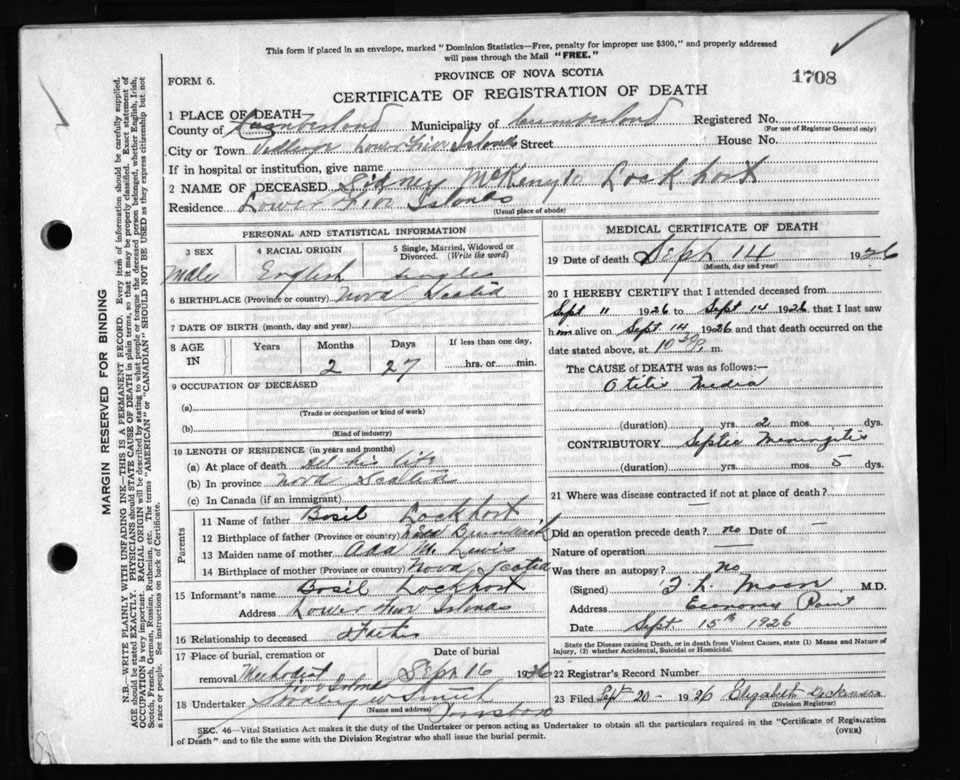 This form if placed in an envelope, marked "Dominion Statistics—Free, penalty for improper use $300," and properly addressed
will pass through the Mail "FREE."
FORM 6.
PROVINCE OF NOVA SCOTIA
1708
CERTIFICATE OF REGISTRATION OF DEATH
1 PLACE OF DEATH—
County of Cumberland Municipality of Cumberland Registered No.
(For use of Registrar General only)
City or Town Village Lower Five Islands Street House No.
If in hospital or institution, give name
2 NAME OF DECEASED Sidney McKenyie Lockhart
Residence Lower Five Islands
(Usual place of abode)
PERSONAL AND STATISTICAL INFORMATION
3 SEX
4 RACIAL ORIGIN
5 Single, Married, Widowed or
Divorced. (Write the word)
Male English single
6 BIRTHPLACE (Province or country) Nova Scotia
7 DATE OF BIRTH (month, day and year)
8 AGE IN
Years Months Days If less than one day,
2 27 hrs. or min.
9 OCCUPATION OF DECEASED
(a)
(Trade or occupation or kind of work)
(b)
(Kind of industry)
10 LENGTH OF RESIDENCE (in years and months)
(a) At place of death All his life
(b) In province Nova Scotia
(c) In Canada (if an immigrant)
Parents
11 Name of father Basil Lockhart
12 Birthplace of father (Province or country) New Brunswick
13 Maiden name of mother Ada M. Lewis
14 Birthplace of mother (Province or country) Nova Scotia
15 Informant's name Basil Lockhart
Address Lower Five Islands
16 Relationship to deceased Father
17 Place of burial, cremation or Date of burial
removal Methodist Sept 16 1926
Five Islands
18 Undertaker Smith
(Name and address)
MEDICAL CERTIFICATE OF DEATH
19 Date of death Sept 14 1926
(Month, day and year)
20 I HEREBY CERTIFY that I attended deceased from
Sept 11 1926 to Sept 14 1926 that I last saw
him alive on Sept. 14 1926 and that death occurred on the
date stated above, at 10 30 P. m.
The CAUSE of DEATH was as follows:—
Otitis Media
(duration) yrs. 2 mos. dys.
CONTRIBUTORY Septic Meningitis
(duration) yrs. mos. 5 dys.
21 Where was disease contracted if not at place of death?
Did an operation precede death? no Date of —
Nature of operation —
Was there an autopsy? no
(Signed) T. L. Moon M.D.
Address Economy Point
Date Sept. 15th 1926
State the Disease causing Death, or in death from Violent Causes, state (1) Means and Nature of
Injury, (2) whether Accidental, Suicidal or Homicidal.
22 Registrar's Record Number
23 Filed Sept 20 - 1926 Elizabeth
(Division Registrar)
SEC. 46—Vital Statistics Act makes it the duty of the Undertaker or person acting as Undertaker to obtain all the particulars required in the "Certificate of Registration
of Death" and to file the same with the Division Registrar who shall issue the burial permit.
(OVER)
MARGIN RESERVED FOR BINDING
N.B.—WRITE PLAINLY WITH UNFADING INK—THIS IS A PERMANENT RECORD. Every item of information should be carefully supplied.
AGE should be stated EXACTLY. PHYSICIANS should STATE CAUSE OF DEATH in plain terms, so that it may be properly classified. Exact statement of
OCCUPATION is very important. RACIAL ORIGIN will be described by stating to what people or tongue the deceased person belonged, whether English, Irish,
Scotch, French, German, Russian, Ruthenian, etc. The terms "AMERICAN" or "CANADIAN" SHOULD NOT BE USED as they express citizenship but not
a race or people. See instructions on back of Certificate.